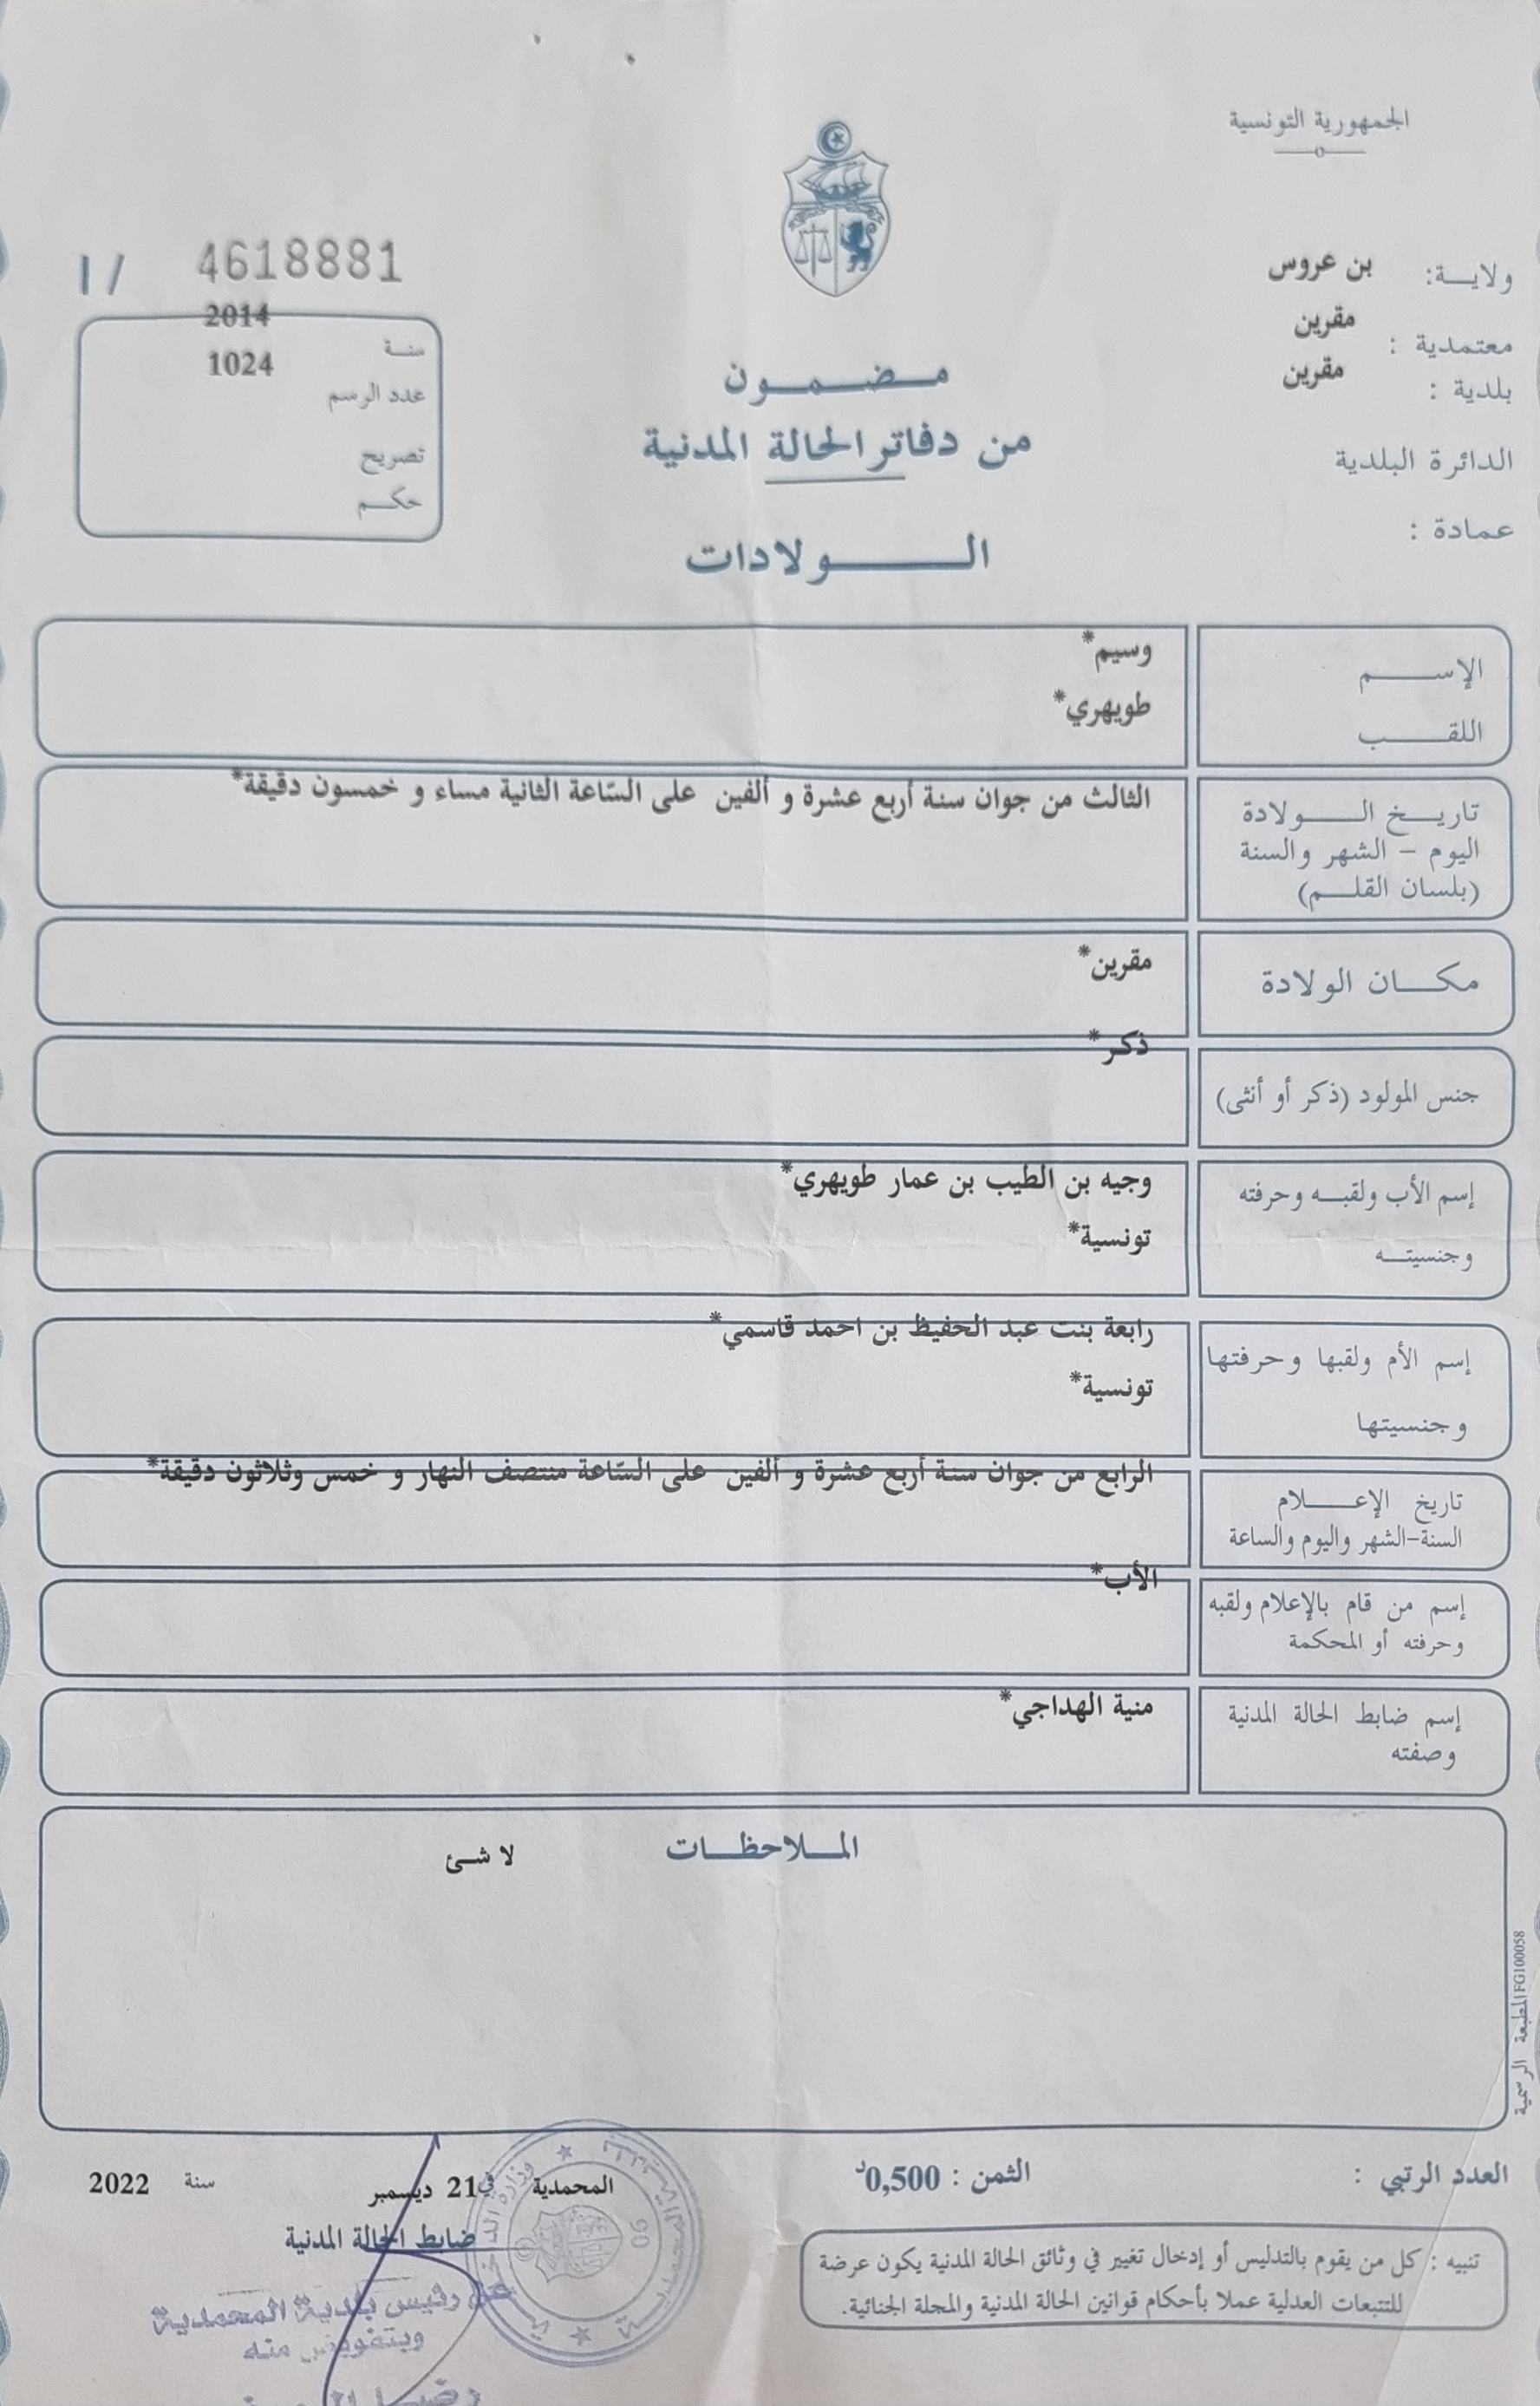 الجمهورية التونسية
ولاية: بن عروس
معتمدية : مقرين
بلدية : مقرين
الدائرة البلدية
عمادة :
I / 4618881
سنة 2014
عدد الرسم 1024
تصريح
حكم
مضمون
من دفاتر الحالة المدنية
الولادات
الإسم وسيم*
اللقب طويهري*
تاريخ الولادة
اليوم - الشهر والسنة
(بلسان القلم)
الثالث من جوان سنة أربع عشرة و ألفين على السّاعة الثانية مساء و خمسون دقيقة*
مكان الولادة مقرين*
جنس المولود (ذكر أو أنثى) ذكر*
إسم الأب ولقبه وحرفته وجيه بن الطيب بن عمار طويهري*
وجنسيته تونسية*
إسم الأم ولقبها وحرفتها رابعة بنت عبد الحفيظ بن احمد قاسمي*
وجنسيتها تونسية*
تاريخ الإعلام
السنة-الشهر واليوم والساعة
الرابع من جوان سنة أربع عشرة و ألفين على السّاعة منتصف النهار و خمس وثلاثون دقيقة*
إسم من قام بالإعلام ولقبه
وحرفته أو المحكمة
الأب*
إسم ضابط الحالة المدنية
وصفته
منية الهداجي*
الملاحظات لا شئ
المطبعة الرسمية FG100058
العدد الرتبي :
الثمن : 0,500د
المحمدية في 21 ديسمبر سنة 2022
ضابط الحالة المدنية
تنبيه : كل من يقوم بالتدليس أو إدخال تغيير في وثائق الحالة المدنية يكون عرضة
للتتبعات العدلية عملا بأحكام قوانين الحالة المدنية والمجلة الجنائية.
عن رئيس بلدية المحمدية
وبتفويض منه
06